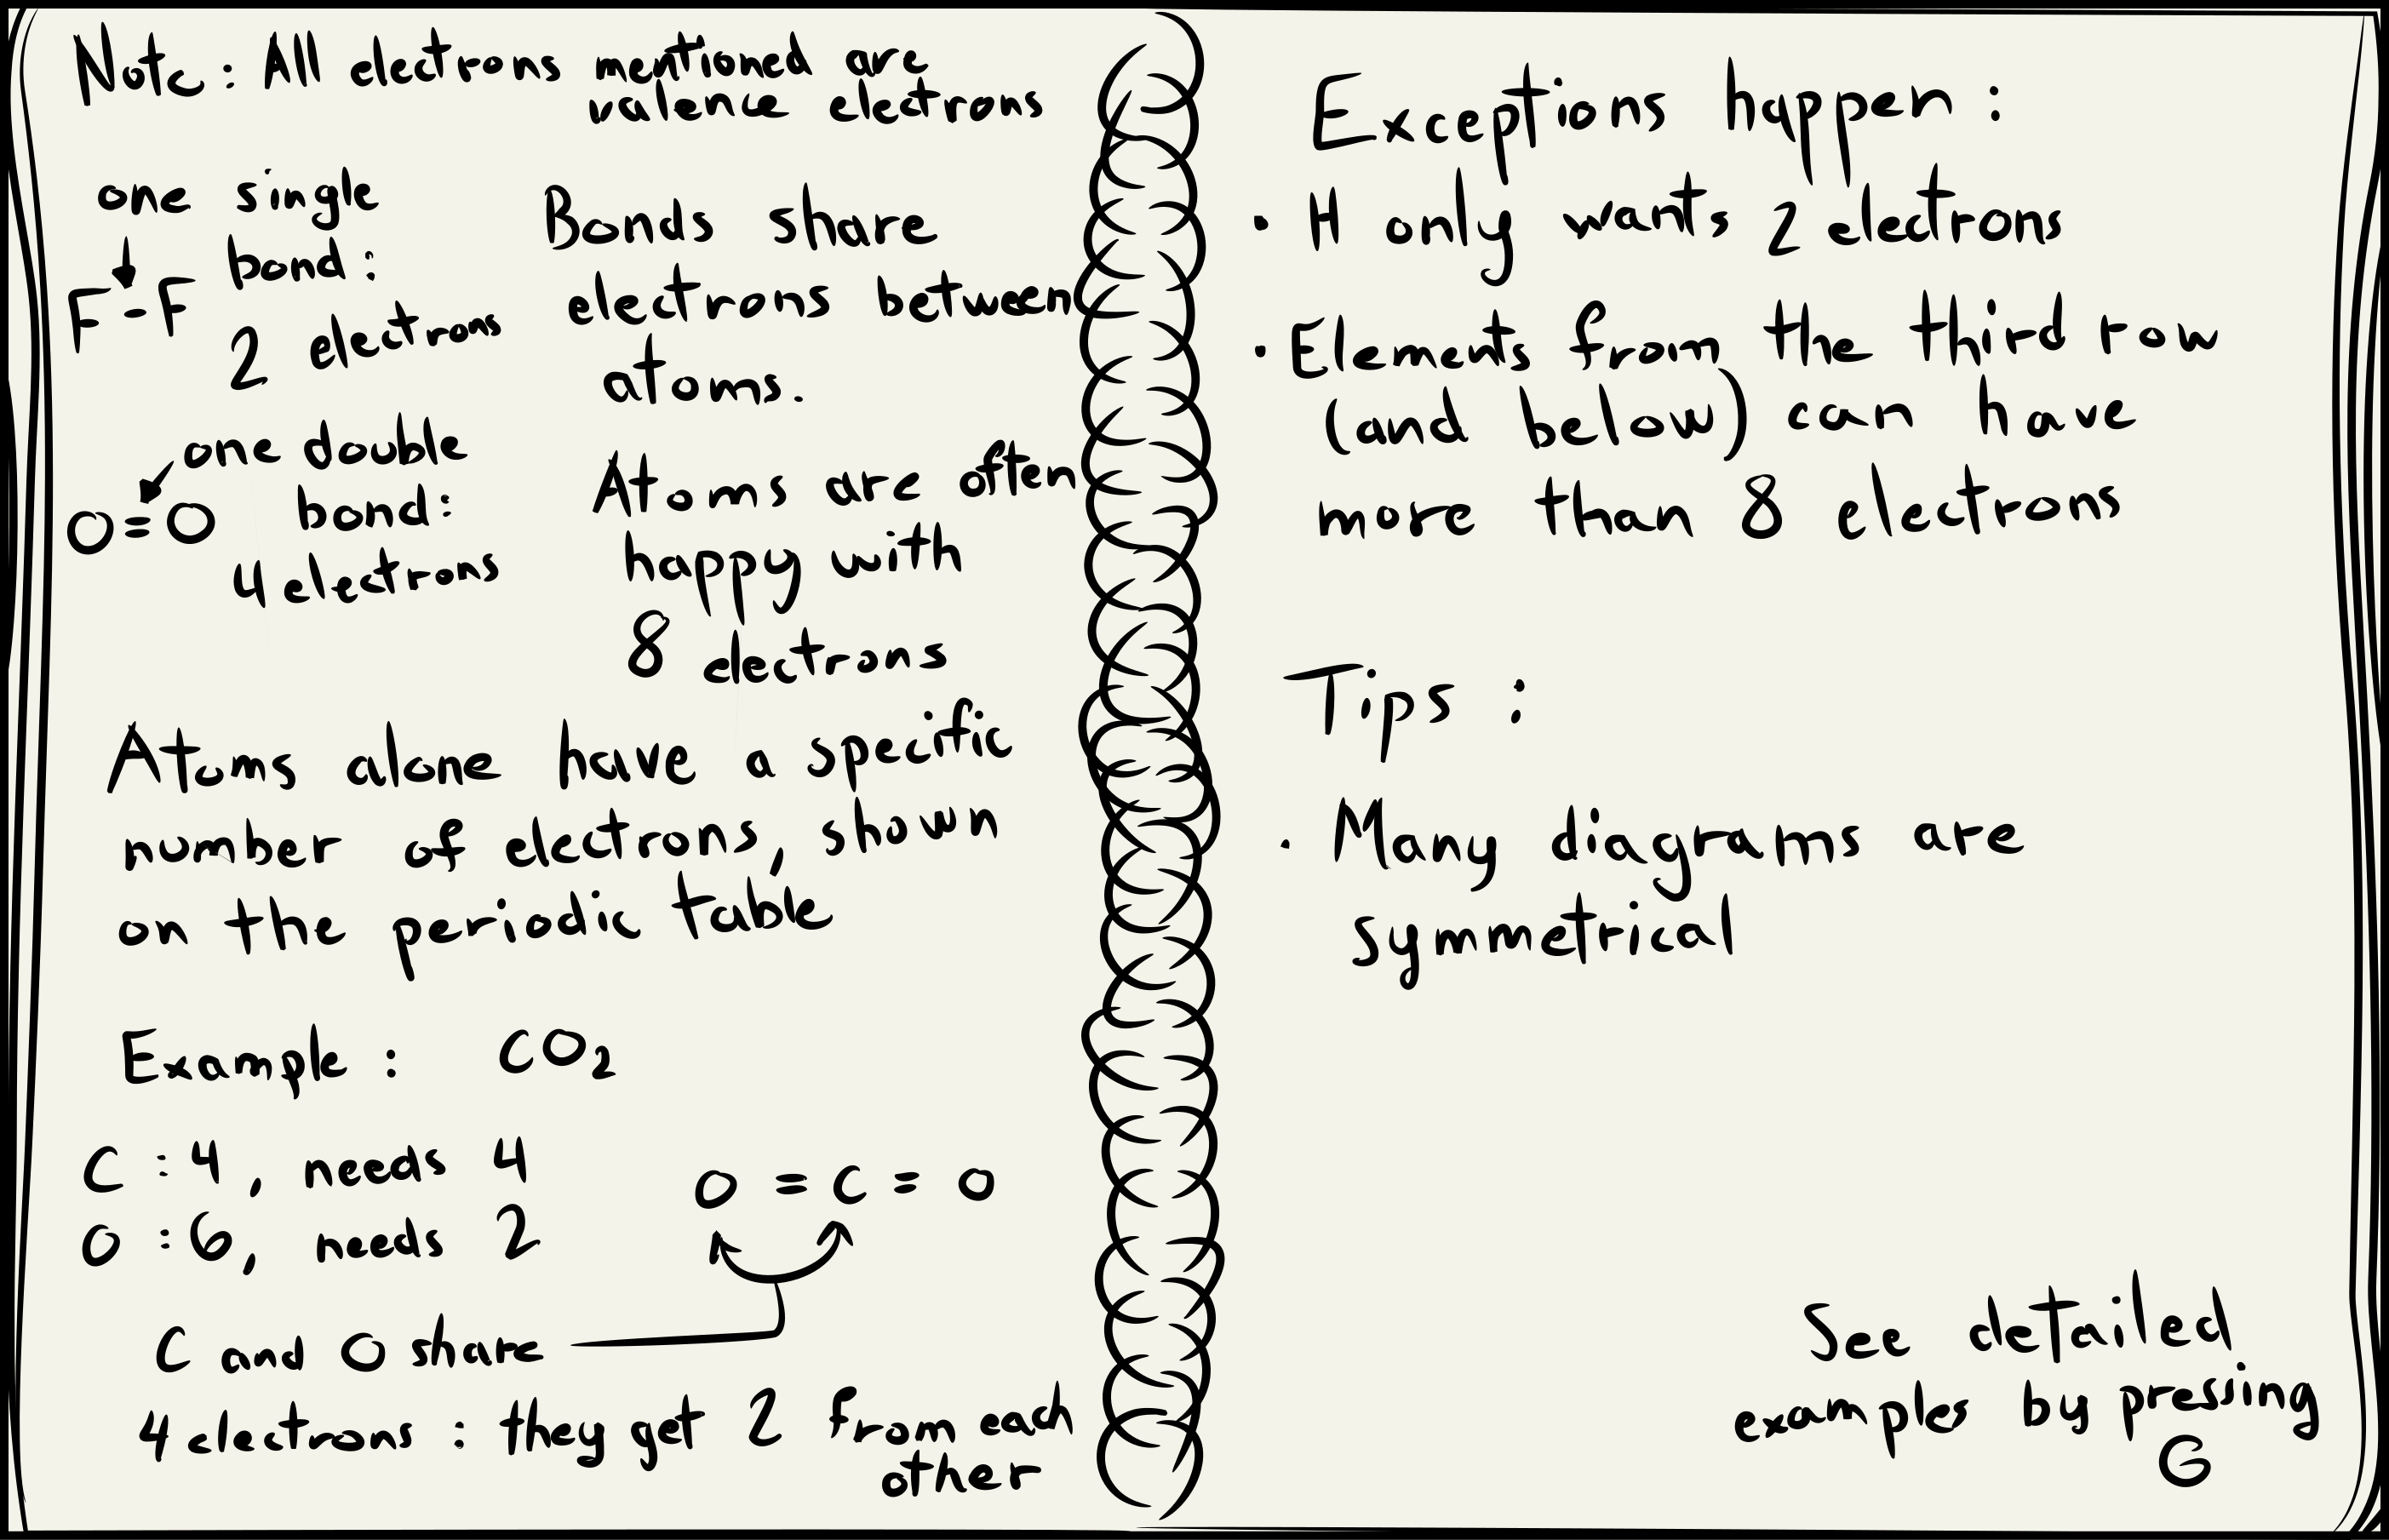 Note : All electrons mentioned are
valence electrons
one single
bond :
F - F
2 electrons
one double
bond:
O = O
4 electrons
Bonds share
electrons between
atoms.
Atoms are often
happy with
8 electrons
Atoms alone have a specific
number of electrons, shown
on the periodic table
Example : CO₂
C : 4, needs 4
O : 6, needs 2
O = C = O
C and O share
4 electrons : they get 2 from each
other
Exceptions happen :
· H only wants 2 electrons
· Elements from the third row
(and below) can have
more than 8 electrons
Tips :
· Many diagrams are
symmetrical
See detailed
examples by pressing
G